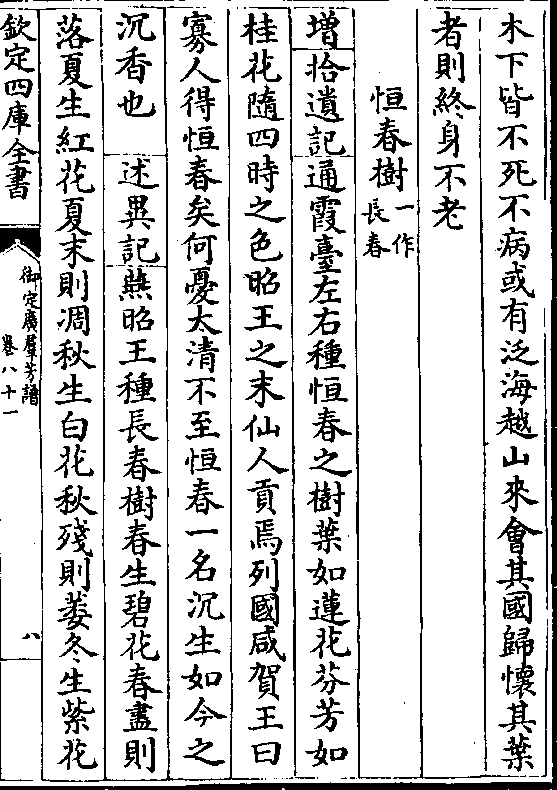 木下皆不死不病或有泛海越山來會其國歸懷其葉
者則終身不老
恒春樹一作長春
增拾遺記通霞臺左右種恒春之樹葉如蓮花芬芳如
桂花隨四時之色昭王之末仙人貢焉列國咸賀王曰
寡人得恒春矣何憂太清不至恒春一名沉生如今之
沉香也　述異記燕昭王種長春樹春生碧花春盡則
落夏生紅花夏末則凋秋生白花秋殘則萎冬生紫花
欽定四庫全書
御定廣羣芳譜
卷八十一
八